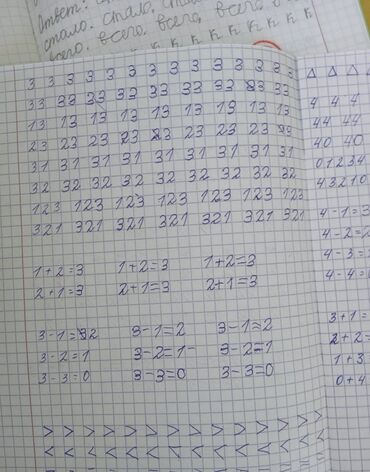 Ответ:
стало. стало, ста
всего. всего, всего, всего
3 3 3 3 3 3 3 3 3 3 3 3 3
33 33 33 33 33 33 33 33 33
13 13 13 13 13 13 13 13 13
23 23 23 23 23 23 23 23 23
31 31 31 31 31 31 31 31 31
32 32 32 32 32 32 32 32 32
123 123 123 123 123 123 123
321 321 321 321 321 321 321
1+2=3 1+2=3 1+2=3
2+1=3 2+1=3 2+1=3
3-1=2 3-1=2 3-1=2
3-2=1 3-2=1 3-2=1
3-3=0 3-3=0 3-3=0
> > > > > > > > > > > > > >
< < < < < < < < < < < < < <
4 4 4
44 44
40 40
01234
43210
4-1=3
4-2=2
4-3=
4-4=
3+1=
2+2=
1+3
0+4